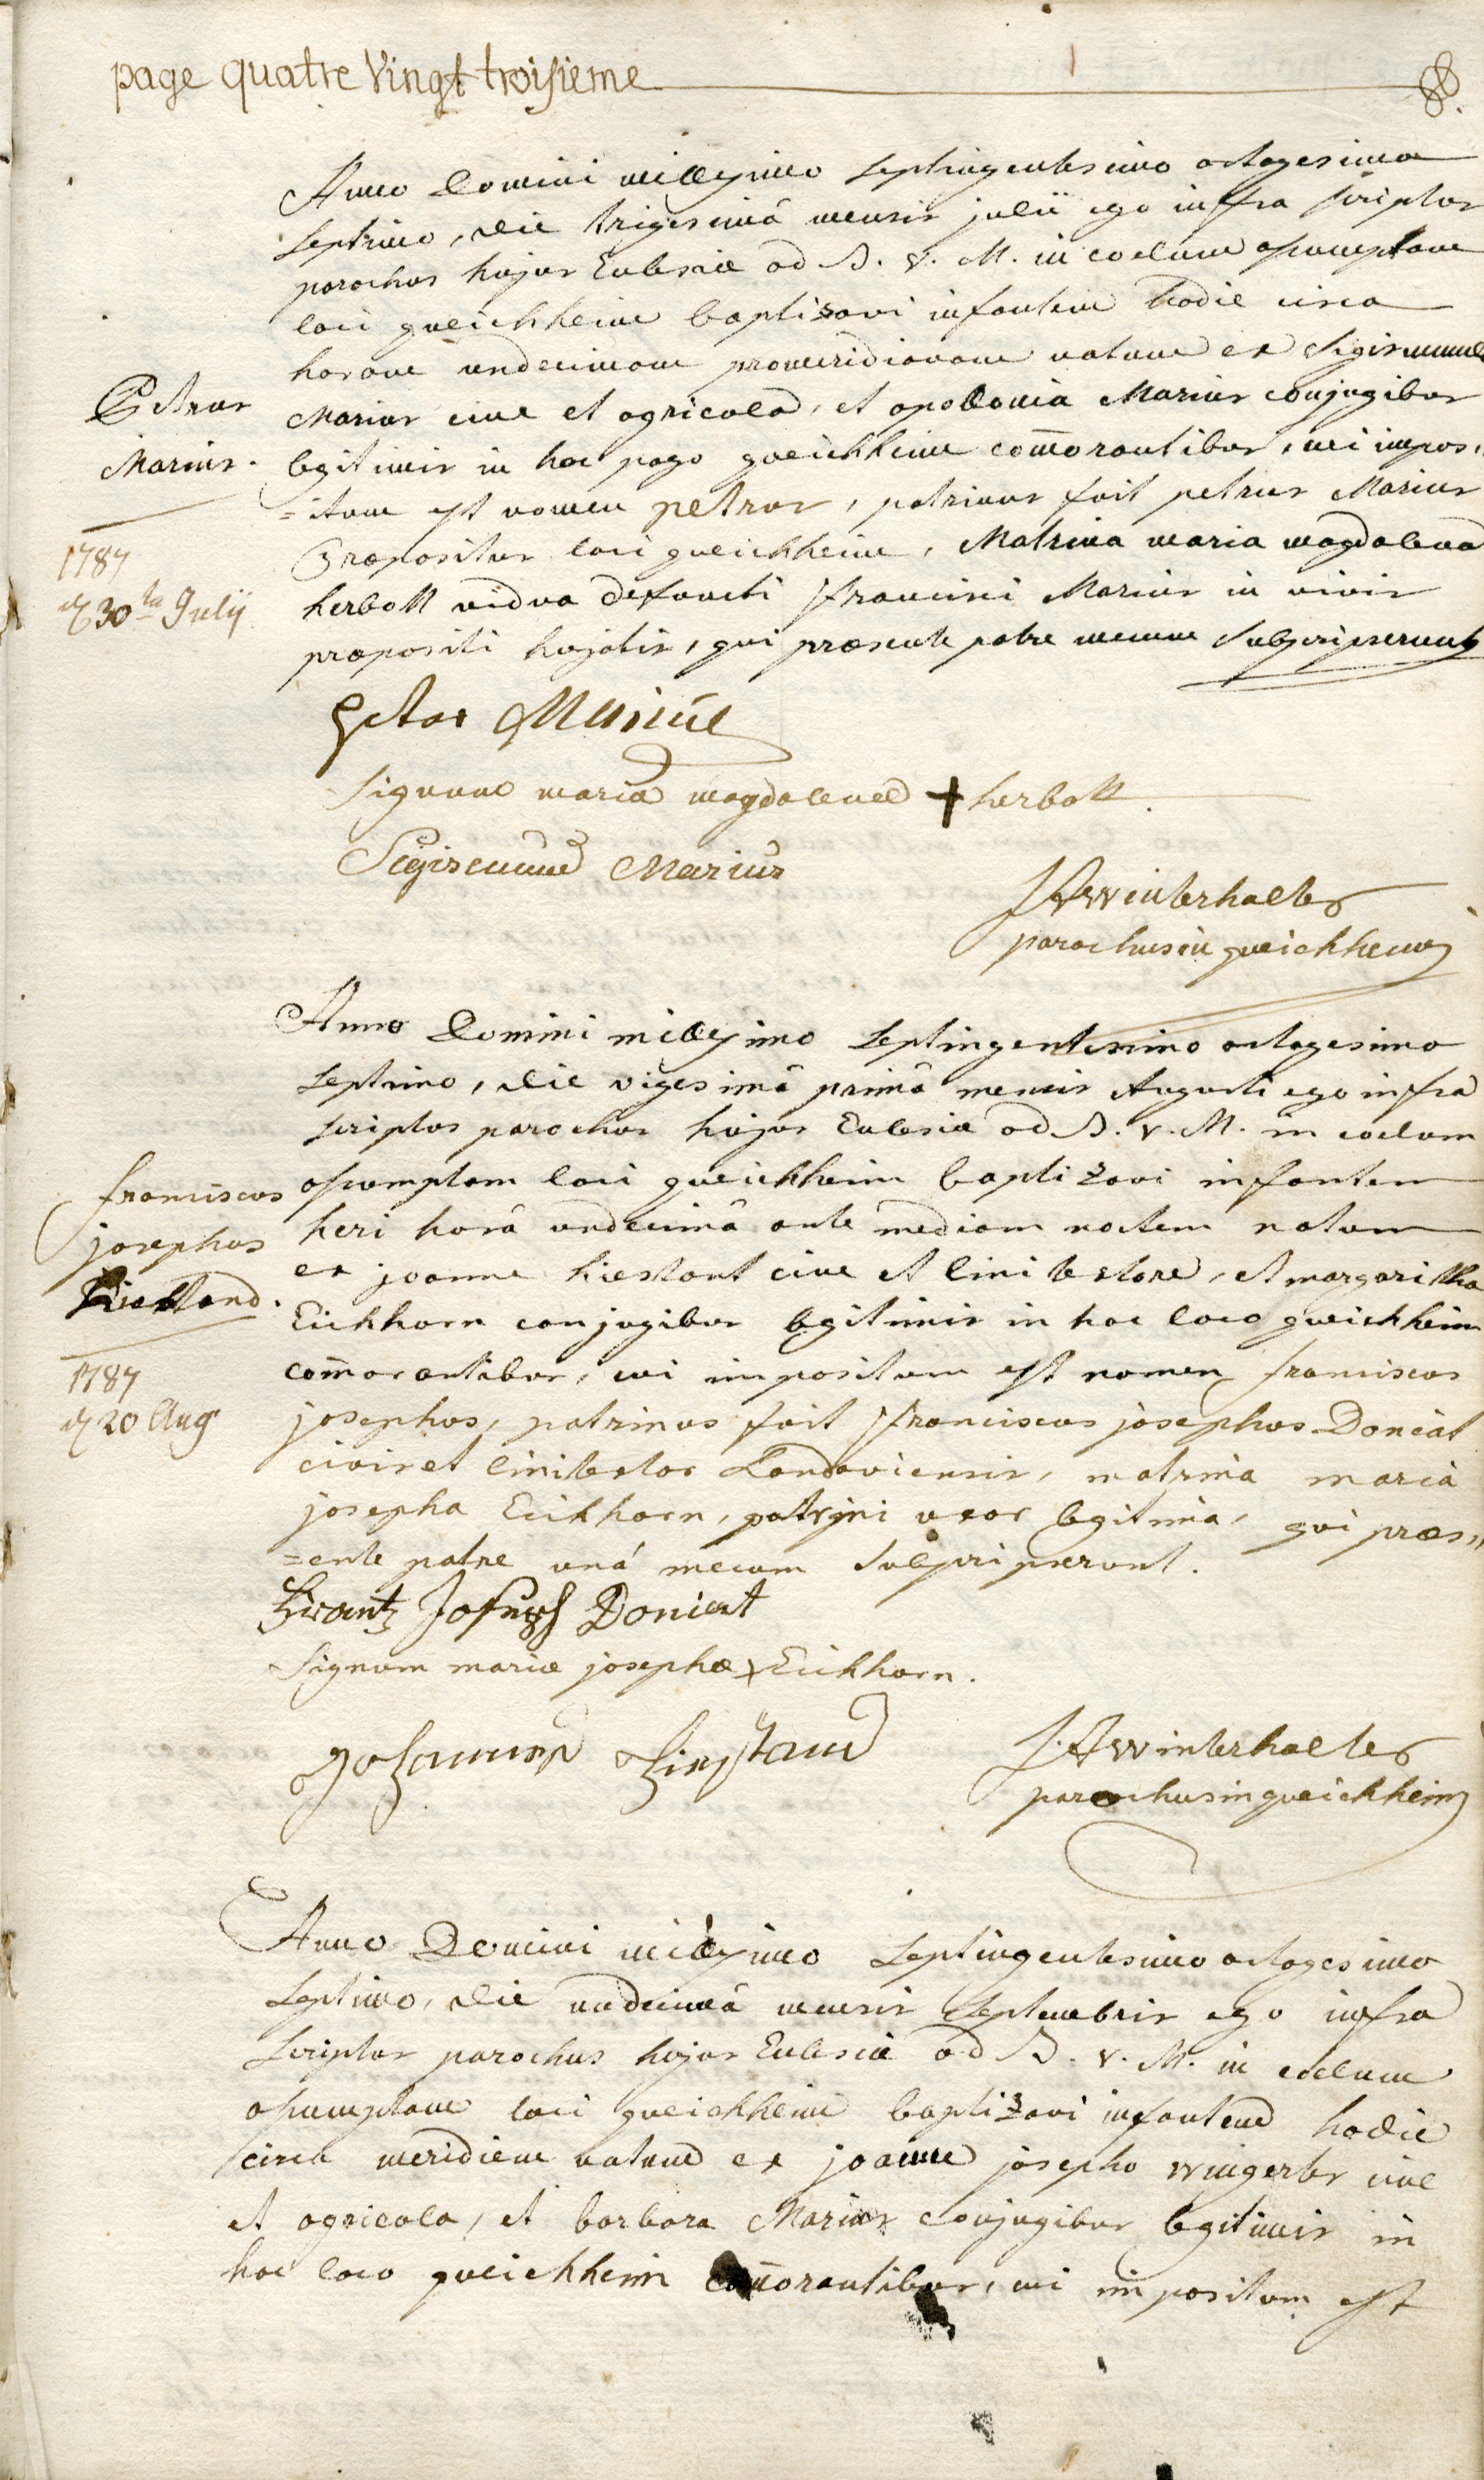 page quatre vingt troisieme
Anno Domini millesimo septingentesimo octogesimo
septimo, die trigesimâ mensis julii ego infra scriptus
parochus hujus Ecclesiæ ad B. V. M. in coelum assumptam
loci queichheim baptizavi infantem hodie circa
horam undecimam promeridianam natum ex Sigismundo
Petrus
Marius.
1787
d 30ta Julij
Marius cive et agricola, et apollonia Marius conjugibus
legitimis in hoc pago queichheim com̄orantibus, cui impos,
=itum est nomen petrus, patrinus fuit petrus Marius
Præpositus loci queichheim, Matrina maria magdalena
herbott vidua defuncti francisci Marius in vivis
præpositi hujatis, qui præsente patre mecum subscripserunt
Petter Marius
Signum mariæ magdalenæ + herbott.
Sigismund Marius
JAWinterhalter
parochus in queichheim
Anno Domini millesimo septingentesimo octogesimo
septimo, die vigesimâ primâ mensis Augusti ego infra
scriptus parochus hujus Ecclesiæ ad B. V. M. in coelum
assumptam loci queichheim baptizavi infantem
heri horâ undecimâ ante mediam noctem natum
franciscus
josephus
Hiestand.
1787
d 20 Aug
ex joanne hiestant cive et linitextore, et margaritha
Eichhorn conjugibus legitimis in hoc loco queichheim
com̄orantibus, cui impositum est nomen franciscus
josephus, patrinus fuit franciscus josephus Doniat
civis et linitextor Landaviensis, matrina maria
josepha Eichhorn, patrini uxor legitima, qui præs,,
=ente patre unâ mecum subscripserunt.
Frantz Joseph Doniat
Signum mariæ josephæ x Eichhorn.
Johannes Hiestand
J.AWinterhalter
parochus in queichheim
Anno Domini millesimo septingentesimo octogesimo
septimo, die undecimâ mensis septembris ego infra
scriptus parochus hujus Ecclesiæ ad B. V. M. in coelum
assumptam loci queichheim baptizavi infantem hodie
circa meridiem natum ex joanne josepho wingerter cive
et agricola, et barbara Marius conjugibus legitimis in
hoc loco queichheim com̄orantibus, cui impositum est